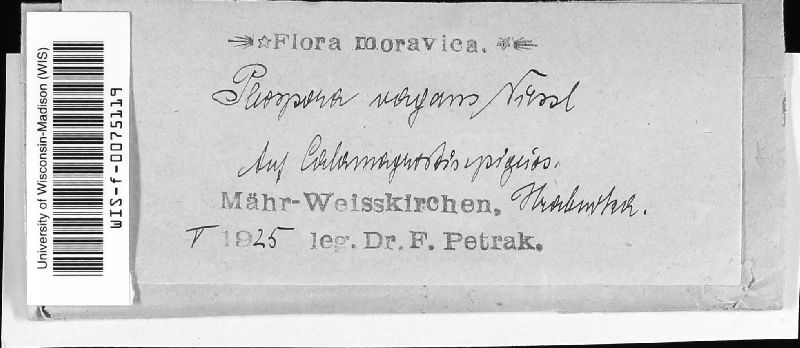 Flora moravica.
Pleospora vagans Niessl
Auf Calamagrostis epigeios.
Mähr-Weisskirchen, Hrabuvka.
V 1925 leg. Dr. F. Petrak.
University of Wisconsin-Madison (WIS)
WIS-f-0075119